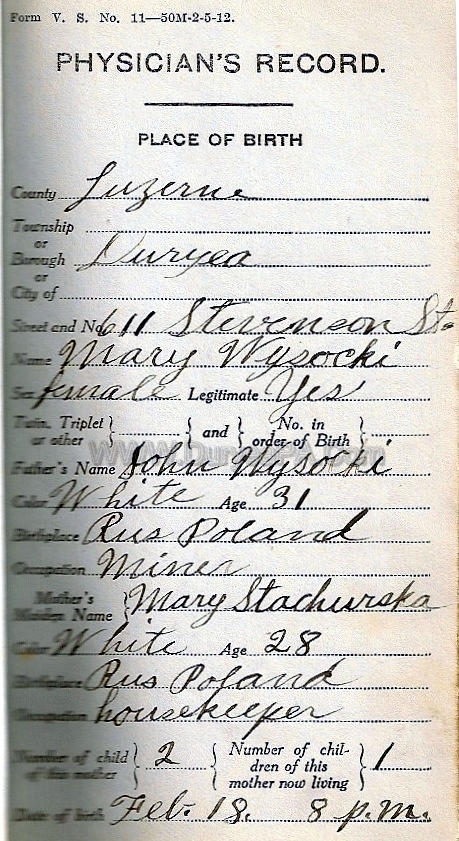 Form V. S. No. 11—50M-2-5-12.
PHYSICIAN'S RECORD.
PLACE OF BIRTH
County Luzerne
Township
or
Borough Duryea
or
City of
Street and No. 611 Stevenson St.
Name Mary Wysocki
Sex female Legitimate Yes
Twin, Triplet or other } { and } No. in order of Birth }
Father's Name John Wysocki
Color White Age 31
Birthplace Rus Poland
Occupation Miner
Mother's Maiden Name } Mary Stachurska
Color White Age 28
Birthplace Rus Poland
Occupation housekeeper
Number of child of this mother } 2 { Number of chil-
dren of this
mother now living } 1
Date of birth Feb. 18. 8 p.m.